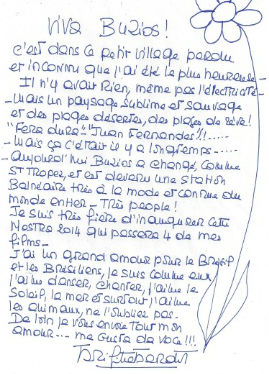 Viva Buzios!
c'est dans ce petit village perdu
et inconnu que j'ai été la plus heureuse -
Il n'y avait rien, même pas l'électricité -
- Mais un paysage sublime et sauvage
et des plages désertes, des plages de rêve!
"Fera dura" "Juan Fernandes"!!......
- Mais ça c'était il y a longtemps -----
- Aujourd'hui Buzios a changé, comme
St Tropez, et est devenu une station
Balnéaire très à la mode et connue du
monde entier - Très people!
Je suis très fière d'inaugurer cette
Mostra 2014 qui passera 4 de mes
films -
J'ai un grand amour pour le Brésil
et les Brésiliens, je suis comme eux
j'aime danser, chanter, j'aime le
Soleil, la mer et surtout j'aime
les animaux, ne l'oubliez pas -
De loin je vous envoie tout mon
amour --- me gusta de voce!!!
Brigitte Bardot